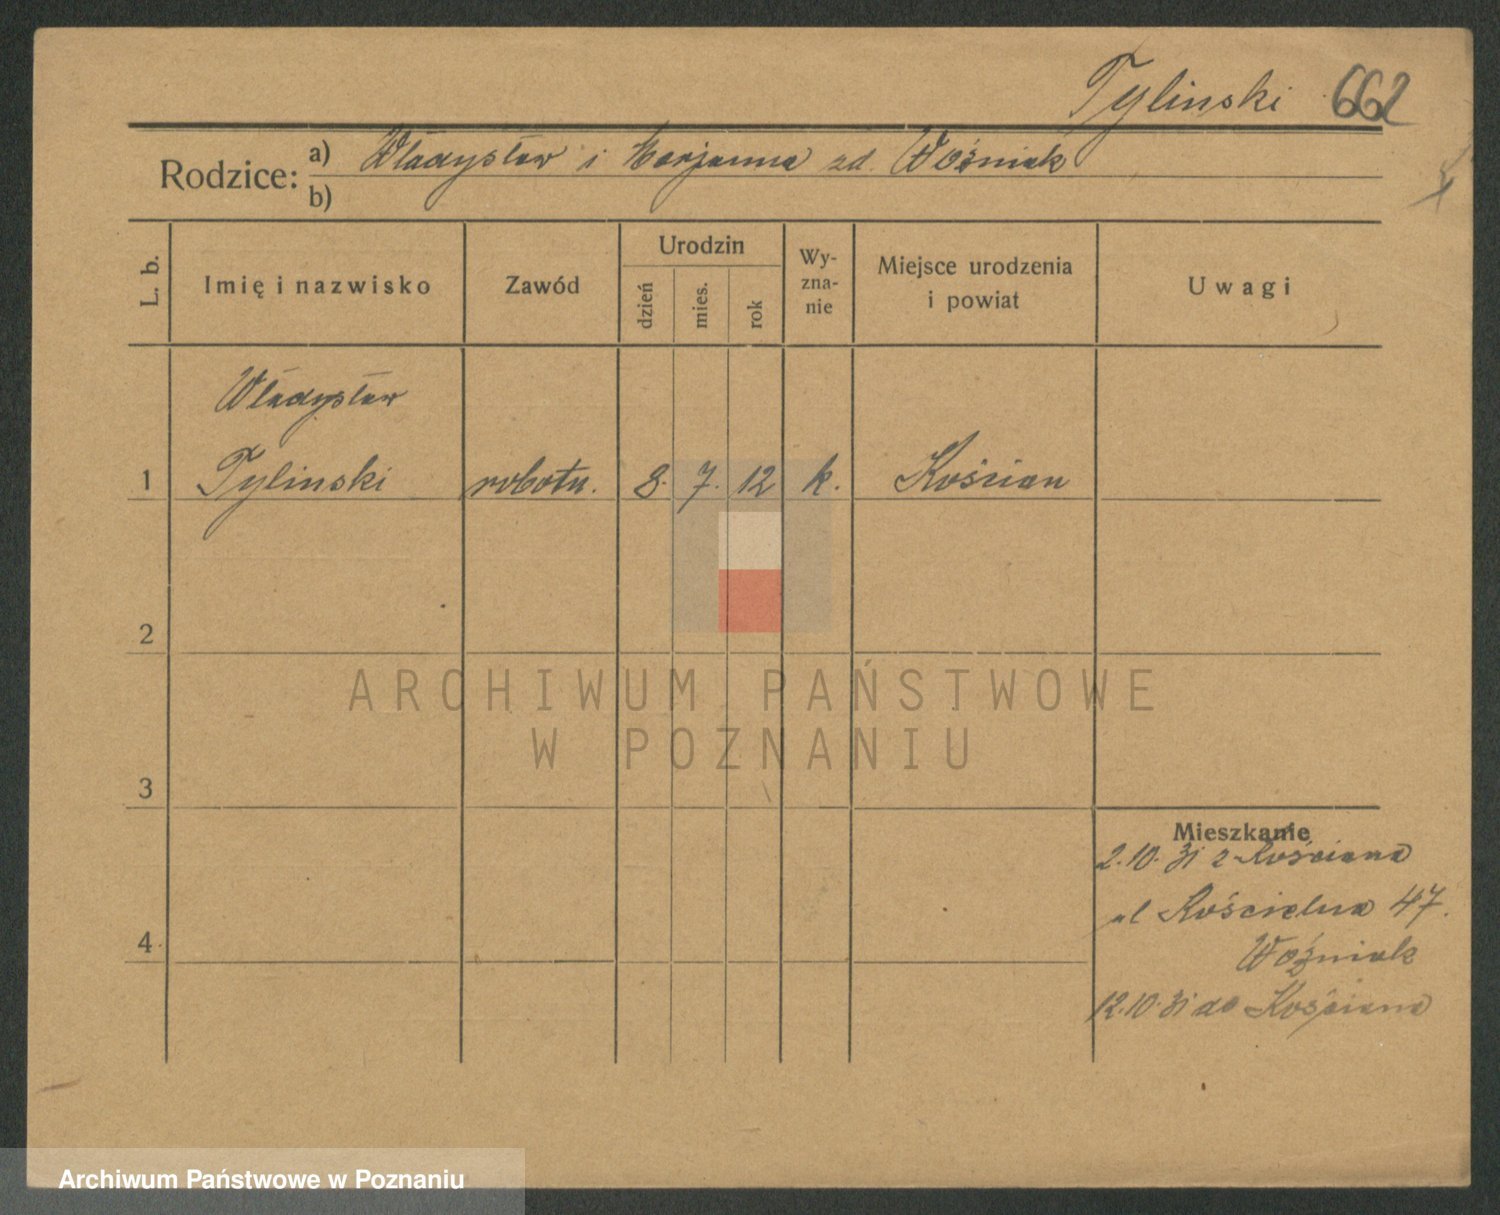 Tylinski 662
Rodzice: a) Władysław i Marjanna zd. Woźniak
b)
L. b.
Imię i nazwisko
Zawód
Urodzin
dzień
mies.
rok
Wy-
zna-
nie
Miejsce urodzenia
i powiat
Uwagi
Władysław
1 Tylinski robotn. 8. 7. 12 k. Kościan
2
ARCHIWUM PAŃSTWOWE
W POZNANIU
3
Mieszkanie
2.10.31 z Kościana
ul Kościelna 47.
Woźniak
4
12.10.31 do Kościana
Archiwum Państwowe w Poznaniu